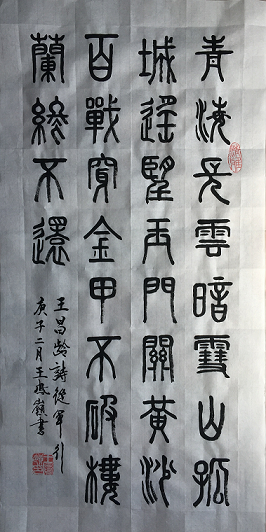 青海長雲暗雪山孤
城遙望玉門關黃沙
百戰穿金甲不破樓
蘭終不還
王昌齡詩從軍行
庚子二月王嶺書